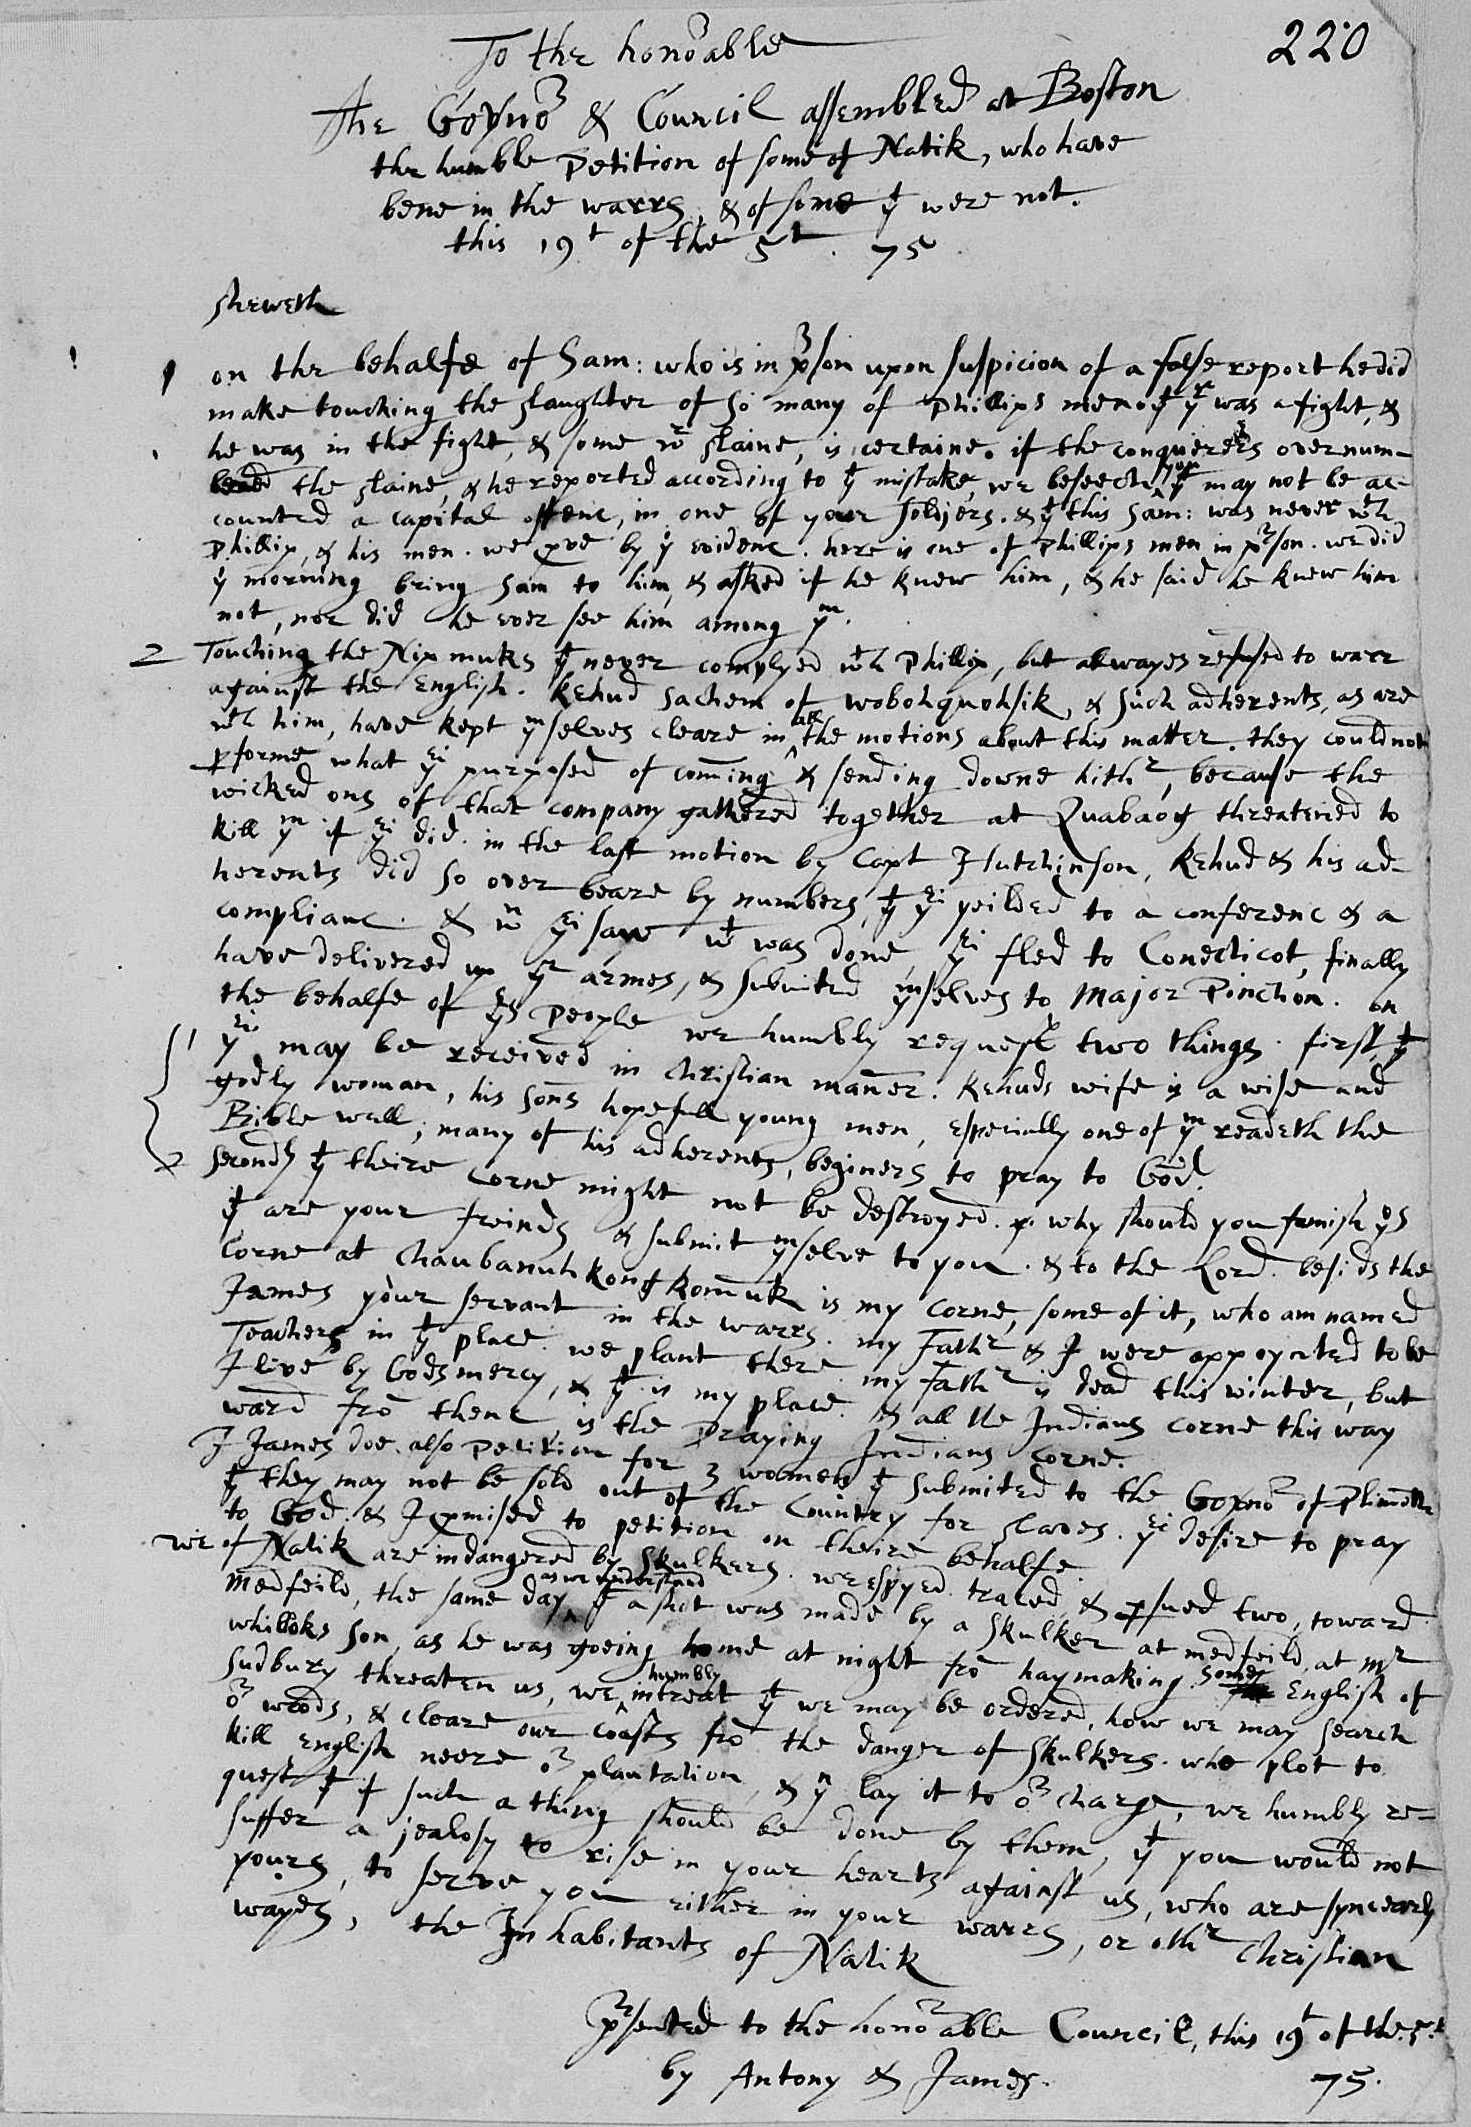 220
To the honorable
The Govno^r & Council assembled at Boston
the humble Petition of some of Natik, who have
bene in the warrs, & of some y^t were not.
this 19^t of the 5^t. 75.
sheweth
1 on the behalfe of Sam: who is in p^rson upon suspicion of a false report he did
make touching the slaughter of so many of Phillips men. y^t y^r was a fight, &
he was in the fight, & some w^r slaine, is certaine. if the conquerers overnum-
bered the slaine, & he reported according to y^t mistake, we beseech you y^t may not be ac-
counted a capital offenc, in one of your soldjers. & y^t this Sam: was never w^th
Phillip, & his men. we pve by y^s evidenc. here is one of Phillips men in p^rson. we did
y^s morning bring Sam to him, & asked if he knew him, & he said he knew him
not, nor did he ever see him among y^m.
2 Touching the Nipmuks y^t never complyed w^th Phillip, but allwayes refused to warr
against the English. Kehud sachem of wobohquohsik, & such adherents, as are
w^th him, have kept y^mselves cleare in all the motions about this matter. they could not
pforme what y^ei purposed of coming & sending downe hith^r, because the
wicked ons of that company gathered together at Quabaog threatened to
kill y^m if y^ei did. in the last motion by Capt Hutchinson, Kehud & his ad-
herents did so over beare by numbers, y^t y^ei yeilded to a conferenc & a
complianc. & w^n y^ei saw w^t was done, y^ei fled to Conecticot, finally
have delivered up y^r armes, & submited y^mselves to Major Pinchon. on
the behalfe of y^s people we humbly request two things. first, y^t
1 y^ei may be received in christian maner. Kehuds wife is a wise and
godly woman, his sons hopefull young men, especially one of y^m readeth the
Bible well; many of his adherents, beginers to pray to God.
2 secondly y^t theire corne might not be destroyed. why should you famish y^os
y^t are your freinds & submit y^mselve to you. & to the Lord. besids the
corne at Chaubanuhkongkomuk is my corne, some of it, who am named
James your servant in the warrs. my Fath^r & I were appoynted to be
Teachers in y^t place. we plant there. my fath^r is dead this winter, but
I live by Gods mercy, & y^t is my place. & all the Indians corne this way
ward fro thenc is the Praying Indians corne.
I James doe also petition for 3 women y^t submited to the Govno^r of Plimoth
y^t they may not be sold out of the Country for slaves. y^ei desire to pray
to God. & I pmised to petition on theire behalfe.
we of Natik are indangered by skulkers. we espyed, traced & psued two, toward
Medfeild, the same day as we understand y^t a shot was made by a skulker at medfeild, at m^r
whilloks son, as he was goeing home at night fro haymaking. some English of
Sudbury threaten us, we humbly intreat y^t we may be ordered, how we may search
o^r woods, & cleare our coasts fro the danger of skulkers. who plot to
kill English neere o^r plantation, & y^n lay it to o^r charge, we humbly re-
quest y^t if such a thing should be done by them, y^t you would not
suffer a jealosy to rise in your hearts against us, who are syncearly
yours, to serve you either in your warrs, or oth^r christian
wayes, the Inhabitants of Natik
p^rsented to the hono^rable Council, this 19^t of the 5^t
by Antony & James. 75.